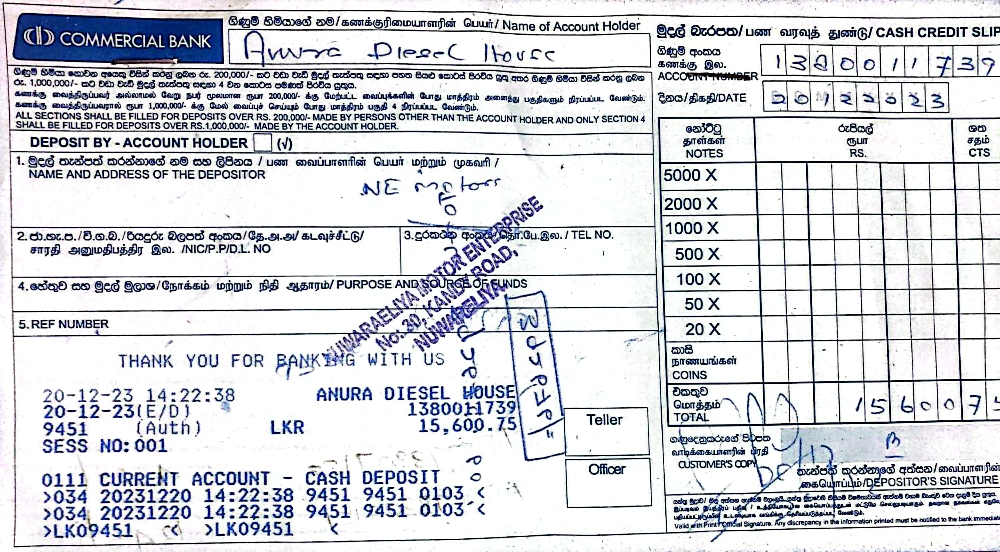 COMMERCIAL BANK
ගිණුම් හිමියාගේ නම/கணக்குரிமையாளரின் பெயர்/ Name of Account Holder
Anura Diesel House
මුදල් බැරපත/பண வரவுத் துண்டு/ CASH CREDIT SLIP
ගිණුම් අංකය
கணக்கு இல.
ACCOUNT NUMBER
1380011739
දිනය/திகதி/DATE
20122023
ALL SECTIONS SHALL BE FILLED FOR DEPOSITS OVER RS. 200,000/- MADE BY PERSONS OTHER THAN THE ACCOUNT HOLDER AND ONLY SECTION 4
SHALL BE FILLED FOR DEPOSITS OVER RS.1,000,000/- MADE BY THE ACCOUNT HOLDER.
DEPOSIT BY - ACCOUNT HOLDER (√)
1. මුදල් තැන්පත් කරන්නාගේ නම සහ ලිපිනය / பண வைப்பாளரின் பெயர் மற்றும் முகவரி /
NAME AND ADDRESS OF THE DEPOSITOR
NE Motors
2. ජා.හැ.ප./වි.ග.බ./රියදුරු බලපත් අංකය/தே.அ.அ/ கடவுச்சீட்டு/
சாரதி அனுமதிபத்திர இல. /NIC/P.P/D.L. NO
3. දුරකථන අංකය/தொ.பே.இல./ TEL NO.
4. හේතුව සහ මුදල් මූලාශ/நோக்கம் மற்றும் நிதி ஆதாரம்/ PURPOSE AND SOURCE OF FUNDS
5. REF NUMBER
NUWARAELIYA MOTOR ENTERPRISE
No: 30, KANDY ROAD,
NUWARELIYA
THANK YOU FOR BANKING WITH US
20-12-23 14:22:38 ANURA DIESEL HOUSE
20-12-23(E/D) 1380011739
9451 (Auth) LKR 15,600.75
SESS NO:001
0111 CURRENT ACCOUNT - CASH DEPOSIT
>034 20231220 14:22:38 9451 9451 0103 <
>034 20231220 14:22:38 9451 9451 0103 <
>LK09451 < >LK09451 <
Teller
Officer
නෝට්ටු
தாள்கள்
NOTES
රුපියල්
ரூபா
RS.
ශත
சதம்
CTS
5000 X
2000 X
1000 X
500 X
100 X
50 X
20 X
කාසි
நாணயங்கள்
COINS
එකතුව
மொத்தம்
TOTAL
1560075
ගනුදෙනුකරුගේ පිටපත
வாடிக்கையாளரின் பிரதி
CUSTOMER'S COPY
තැන්පත් කරන්නාගේ අත්සන/வைப்பாளரின்
கையொப்பம்/DEPOSITOR'S SIGNATURE
Valid with Print/Official Signature. Any discrepancy in the information printed must be notified to the bank immediate